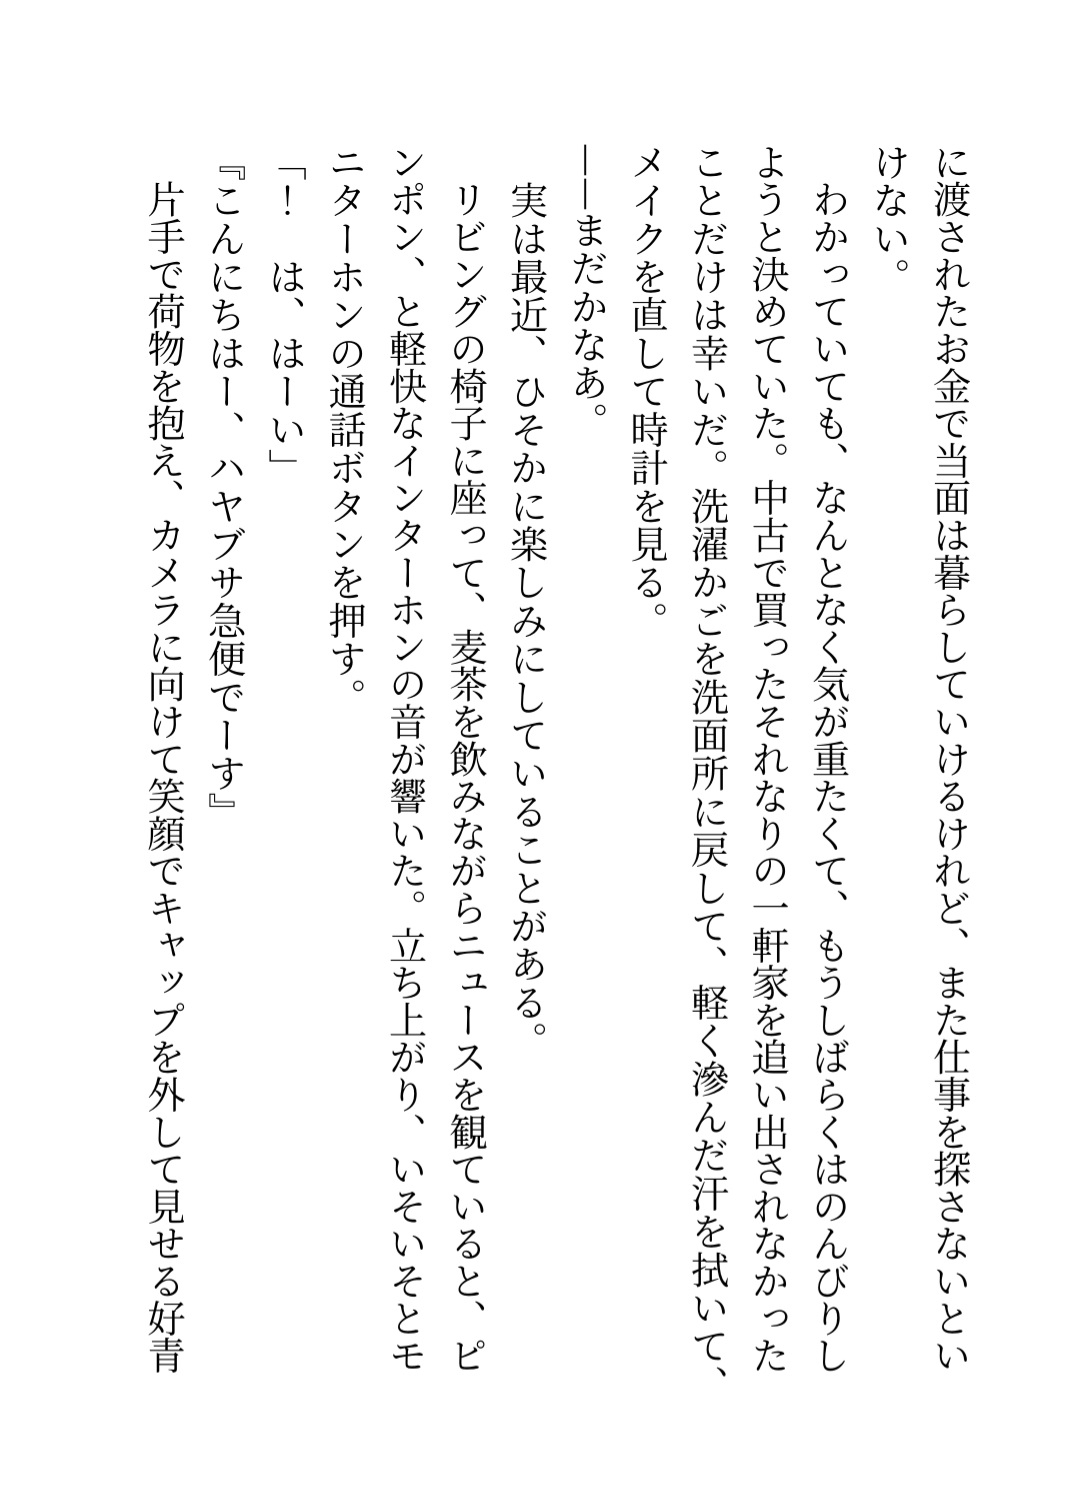 に渡されたお金で当面は暮らしていけるけれど、また仕事を探さないとい
けない。
　わかっていても、なんとなく気が重たくて、もうしばらくはのんびりし
ようと決めていた。中古で買ったそれなりの一軒家を追い出されなかった
ことだけは幸いだ。洗濯かごを洗面所に戻して、軽く滲んだ汗を拭いて、
メイクを直して時計を見る。
――まだかなあ。
　実は最近、ひそかに楽しみにしていることがある。
　リビングの椅子に座って、麦茶を飲みながらニュースを観ていると、ピ
ンポン、と軽快なインターホンの音が響いた。立ち上がり、いそいそとモ
ニターホンの通話ボタンを押す。
「！　は、はーい」
『こんにちはー、ハヤブサ急便でーす』
　片手で荷物を抱え、カメラに向けて笑顔でキャップを外して見せる好青